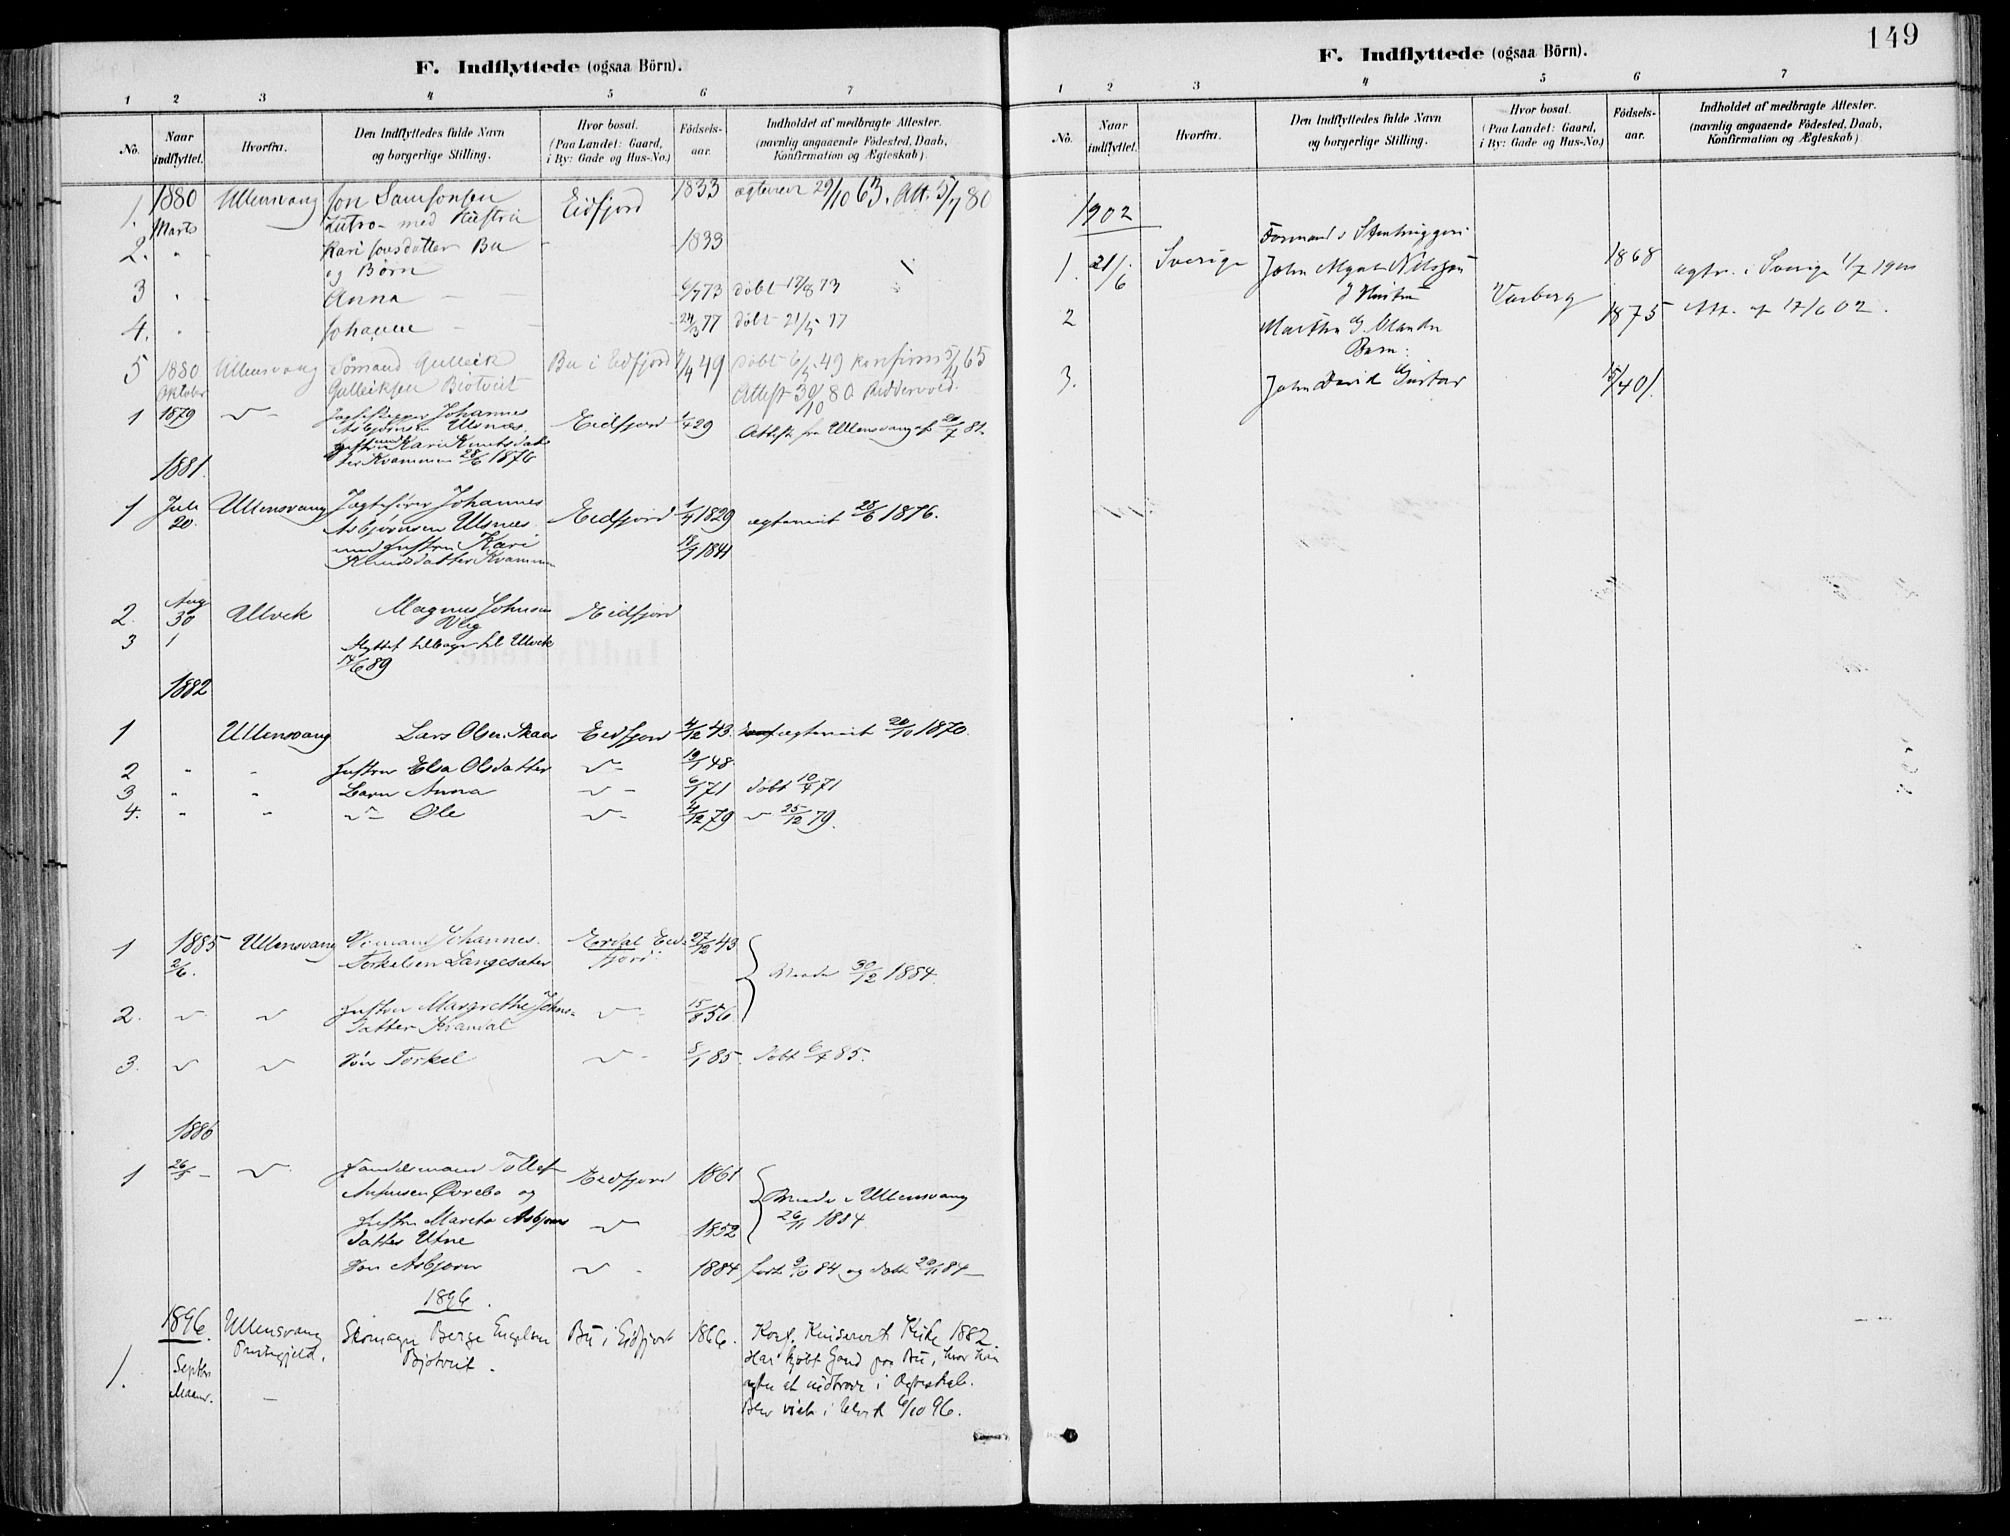 F. Indflyttede (ogsaa Börn).
1 2 3 4 5 6 7
No. Naar indflyttet. Hvorfra. Den Indflyttedes fulde Navn og borgerlige Stilling. Hvor bosat. (Paa Landet: Gaard, i By: Gade og Hus-No.) Födsels-aar. Indholdet af medbragte Attester. (navnlig angaaende Födested, Daab, Konfirmation og Ægteskab)
1. 1880 Ullensvang Jon Samsonsen Eidfjord 1833 ægteviet 29/10 63. Att. 5/7 80
Marts Lutro med Hustru
2. " Kari Jonsdatter Bu 1833
og Børn
3 " Anna 6/7 73 døbt 17/8 73
4. " Johanne 24/3 77 døbt 21/5 77
5 1880 Ullensvang Sømand Gulleik Bu i Eidfjord 1/4 49 Døbt 6/5 49 Konfirm 5/11 65
Oktober Gulleiksen Bjotveit Attest 30/10 80 Riddervold
1 1879 Jægteskipper Johannes Eidfjord 1/4 29 Attest fra Ullensvang af 20/7 81.
Asbjørnsen Ulsnæs,
med Hustru Kari Knutsdat-
ter Kvammen 28/6 1876
1881.
1 Juli Ullensvang Jægtefører Johannes Eidfjord 1/4 1829 ægteviet 28/6 1876.
20. Asbjørnsen Ulsnæs
med Hustru Kari 18/9 1841
Knudsdatter Kvammen
2. Aug Ulvik Magnus Johnsen Eidfjord
30
3 1 flyttet tilbage til Ulvik
14/6 89
1882
1 Ullensvang Lars Olsen Skaar Eidfjord 4/12 43. ægteviet 20/10 1870.
2 " " Hustru Elsa Olsdatter 19/1 48
3 " " Barn Anna 6/1 71 døbt 10/4 71
4. " " Ole 4/12 79 25/12 79.
1 1885 Ullensvang Johannes Erdal Eid- 27/12 43
2/6. Torkelsen Langesæter fjord
Viede 30/12 1884.
2. Hustru Margrethe Johns- 15/8 56
datter Kvandal
3. Søn Torkel 8/1 85. døbt 6/4 85.
1886
1 26/5 Handelsmand Tollef Eidfjord 1861
Øvrebø og Viede i Ullensvang
Hustru Marita Asbjørns 1852 26/11 1884
datter Utne
Søn Asbjørn 1884 født 9/10 84 og døbt 29/11 84
1896.
1896. Ullensvang Skomager Berge Engelsen Bu i Eidfjord 1866. Konf. Kinservik Kirke 1882
1. Septbr Præstegjeld. Bjotveit. Har kjøbt Gaard paa Bu, hvor han
Maaned. agter at indtræde i Ægteskab.
Blev viet i Ulvik 6/10 96.
149
F. Indflyttede (ogsaa Börn).
1 2 3 4 5 6 7
No. Naar indflyttet. Hvorfra. Den Indflyttedes fulde Navn og borgerlige Stilling. Hvor bosat. (Paa Landet: Gaard, i By: Gade og Hus-No.) Födsels-aar. Indholdet af medbragte Attester. (navnlig angaaende Födested, Daab, Konfirmation og Ægteskab)
1902
Formand v Stenhuggeri
1. 21/6 Sverige John Nilsson 1868 ægtev. i Sverige 1/7 1900
& Hustru Varberg Att. af 17/6 02.
2 Martha G. 1875
Barn:
3. John David Gustav 15/4 01.